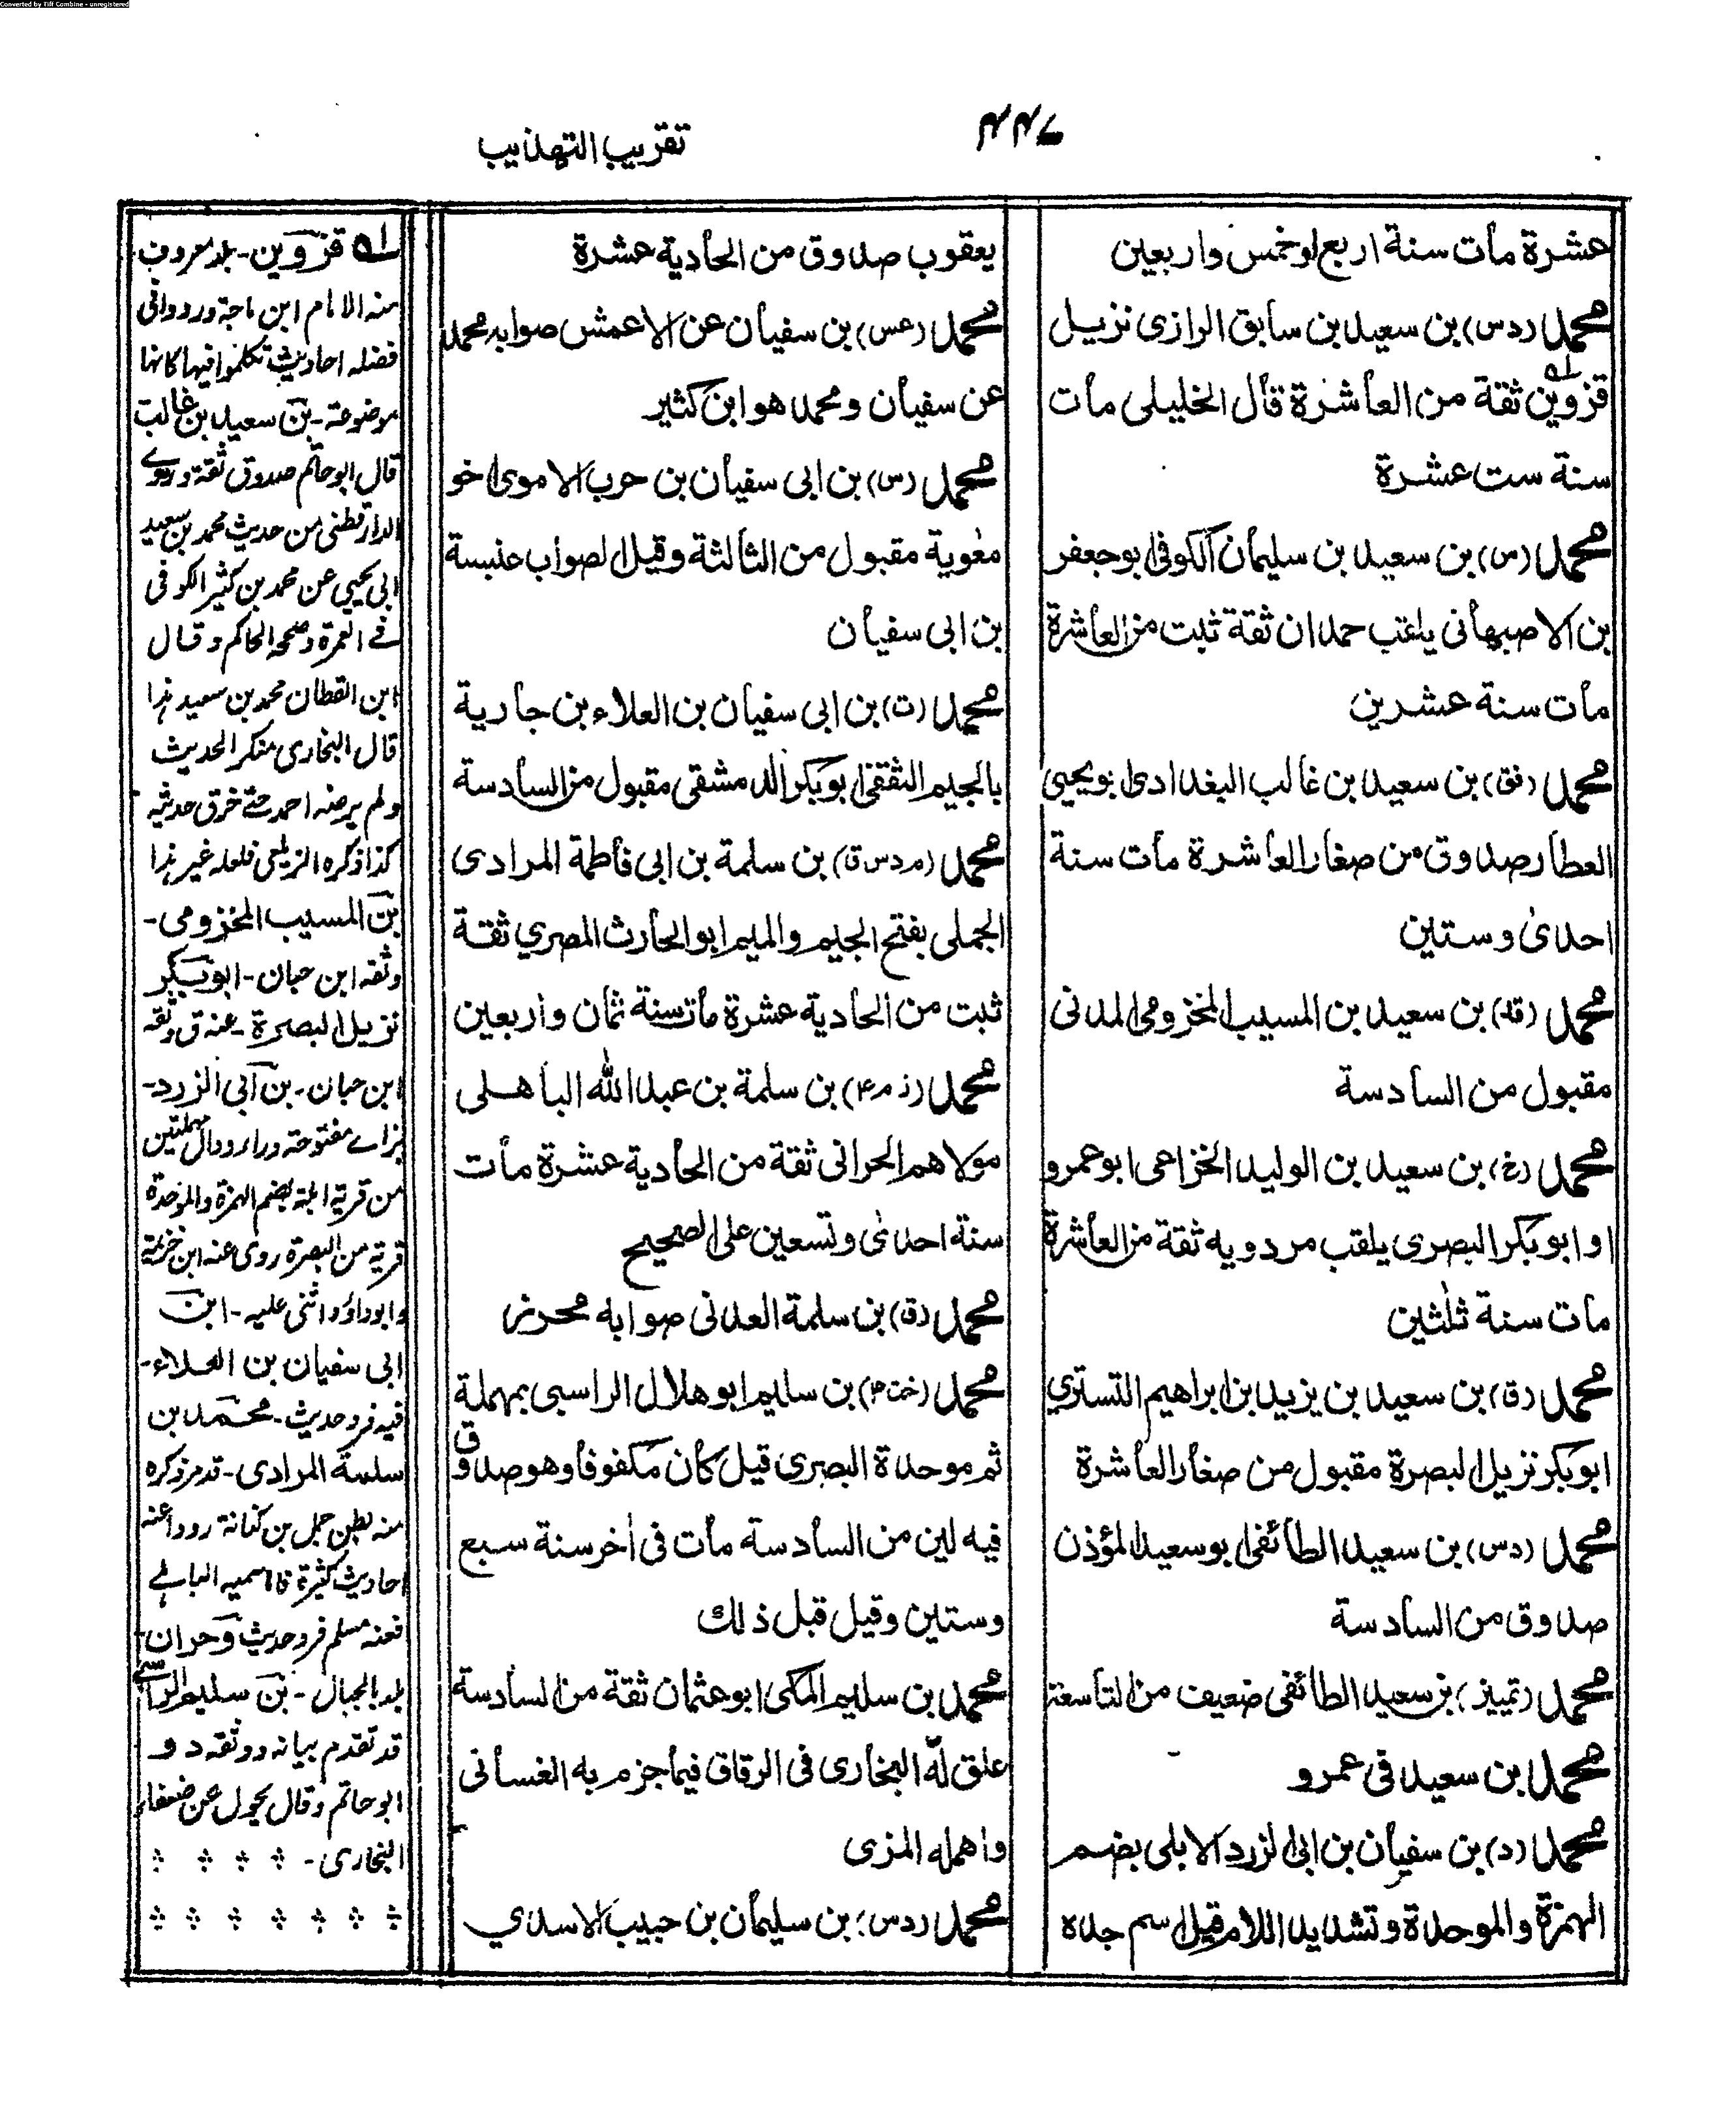 Converted by Tiff Combine - unregistered
تقريب التهذيب
عشرة مات سنة اربع او خمس واربعين
محمد (دس) بن سعيد بن سابق الرازى نزيل
قزوين ثقة من العاشرة قال الخليلى مات
سنة ست عشرة
محمد (س) بن سعيد بن سليمان الكوفى ابو جعفر
بن الاصبهانى يلقب حمدان ثقة ثبت من العاشرة
مات سنة عشرين
محمد (فق) بن سعيد بن غالب البغدادى ابو يحيى
العطار صدوق من صغار العاشرة مات سنة
احدى وستين
محمد (قد) بن سعيد بن المسيب المخزومى المدنى
مقبول من السادسة
محمد (خ) بن سعيد بن الوليد الخزاعى ابو عمرو
او ابو بكر البصرى يلقب مردويه ثقة من العاشرة
مات سنة ثلثين
محمد (ق) بن سعيد بن يزيد بن ابراهيم التسترى
ابو بكر نزيل البصرة مقبول من صغار العاشرة
محمد (دس) بن سعيد الطائفى ابو سعيد المؤذن
صدوق من السادسة
محمد (تمييز) بن سعيد الطائفى ضعيف من التاسعة
محمد بن سعيد فى عمرو
محمد (د) بن سفيان بن ابى الزرد الابلى بضم
الهمزة والموحدة وتشديد اللام قيل اسم جده
يعقوب صدوق من الحادية عشرة
محمد (عس) بن سفيان عن الاعمش صوابه محمد
عن سفيان ومحمد هو ابن كثير
محمد (س) بن ابى سفيان بن حرب الاموى اخو
معوية مقبول من الثالثة وقيل الصواب عنبسة
بن ابى سفيان
محمد (ت) بن ابى سفيان بن العلاء بن جارية
بالجيم الثقفى ابو بكر الدمشقى مقبول من السادسة
محمد (م د س ق) بن سلمة بن ابى فاطمة المرادى
الجملى بفتح الجيم والميم ابو الحارث المصري ثقة
ثبت من الحادية عشرة مات سنة ثمان واربعين
محمد (ز م ۴) بن سلمة بن عبد الله الباهلى
مولاهم الحرانى ثقة من الحادية عشرة مات
سنة احدى وتسعين على الصحيح
محمد (ق) بن سلمة العدنى صوابه محرز
محمد (خت ۴) بن سليم ابو هلال الراسبى بمهملة
ثم موحدة البصرى قيل كان مكفوفا وهو صدوق
فيه لين من السادسة مات فى اخر سنة سبع
وستين وقيل قبل ذلك
محمد بن سليم المكى ابو عثمان ثقة من السادسة
علق له البخارى فى الرقاق فيما جزم به الغسانى
واهمله المزى
محمد (دس) بن سليمان بن حبيب الاسدي
قزوين - بلد معروف
منه الامام ابن ماجة وردوا فى
فضله احاديث تكلموا فيها كانها
موضوعة - بن سعيد بن غالب
قال ابو حاتم صدوق ثقة وروے
الدارقطنى من حديث محمد بن سعيد
ابى يحيى عن محمد بن كثير الكوفى
فے العمرة وصححه الحاكم وقال
ابن القطان محمد بن سعيد هذا
قال البخارى منكر الحديث
ولم يرضه احمد حتے خرق حديثه
كذا ذكره الزيلعى فلعله غير هذا
بن المسيب المخزومى -
وثقه ابن حبان - ابو بكر
نزيل البصرة - عنه ق وثقه
ابن حبان - بن ابى الزرد -
بزاے مفتوحة وراء ودال مهملتين
من قرية ابلة بضم الهمزة والموحدة
قرية من البصرة روى عنه ابن خزيمة
وابوداؤد واثنى عليه - ابن
ابى سفيان بن العلاء -
فيه فرد حديث - محمد بن
سلمة المرادى - قد مر ذكره
منه بطن جمل بن كنانة رووا عنه
احاديث كثيرة فاما سميه الباہلے
فعنه مسلم فرد حديث وحران
بلد بالجبال - بن سليم الراسبے
قد تقدم بيانه ووثقه د و
ابو حاتم وقال يحول عن ضعفاء
البخارى -